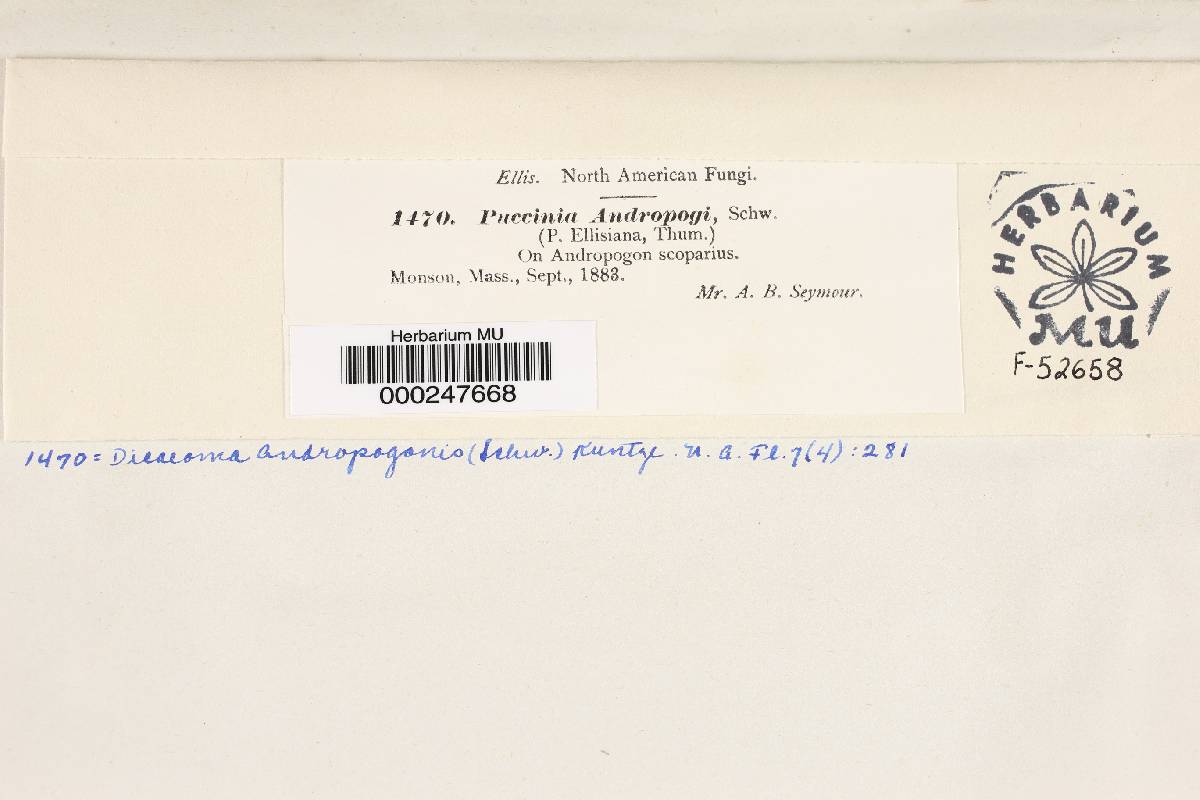 Ellis. North American Fungi.
1470. Puccinia Andropogi, Schw.
(P. Ellisiana, Thum.)
On Andropogon scoparius.
Monson, Mass., Sept., 1883.
Mr. A. B. Seymour.
Herbarium MU
000247668
HERBARIUM
MU
F-52658
1470 = Dicaeoma andropogonis (Schw.) Kuntze. N. A. Fl. 7(4): 281